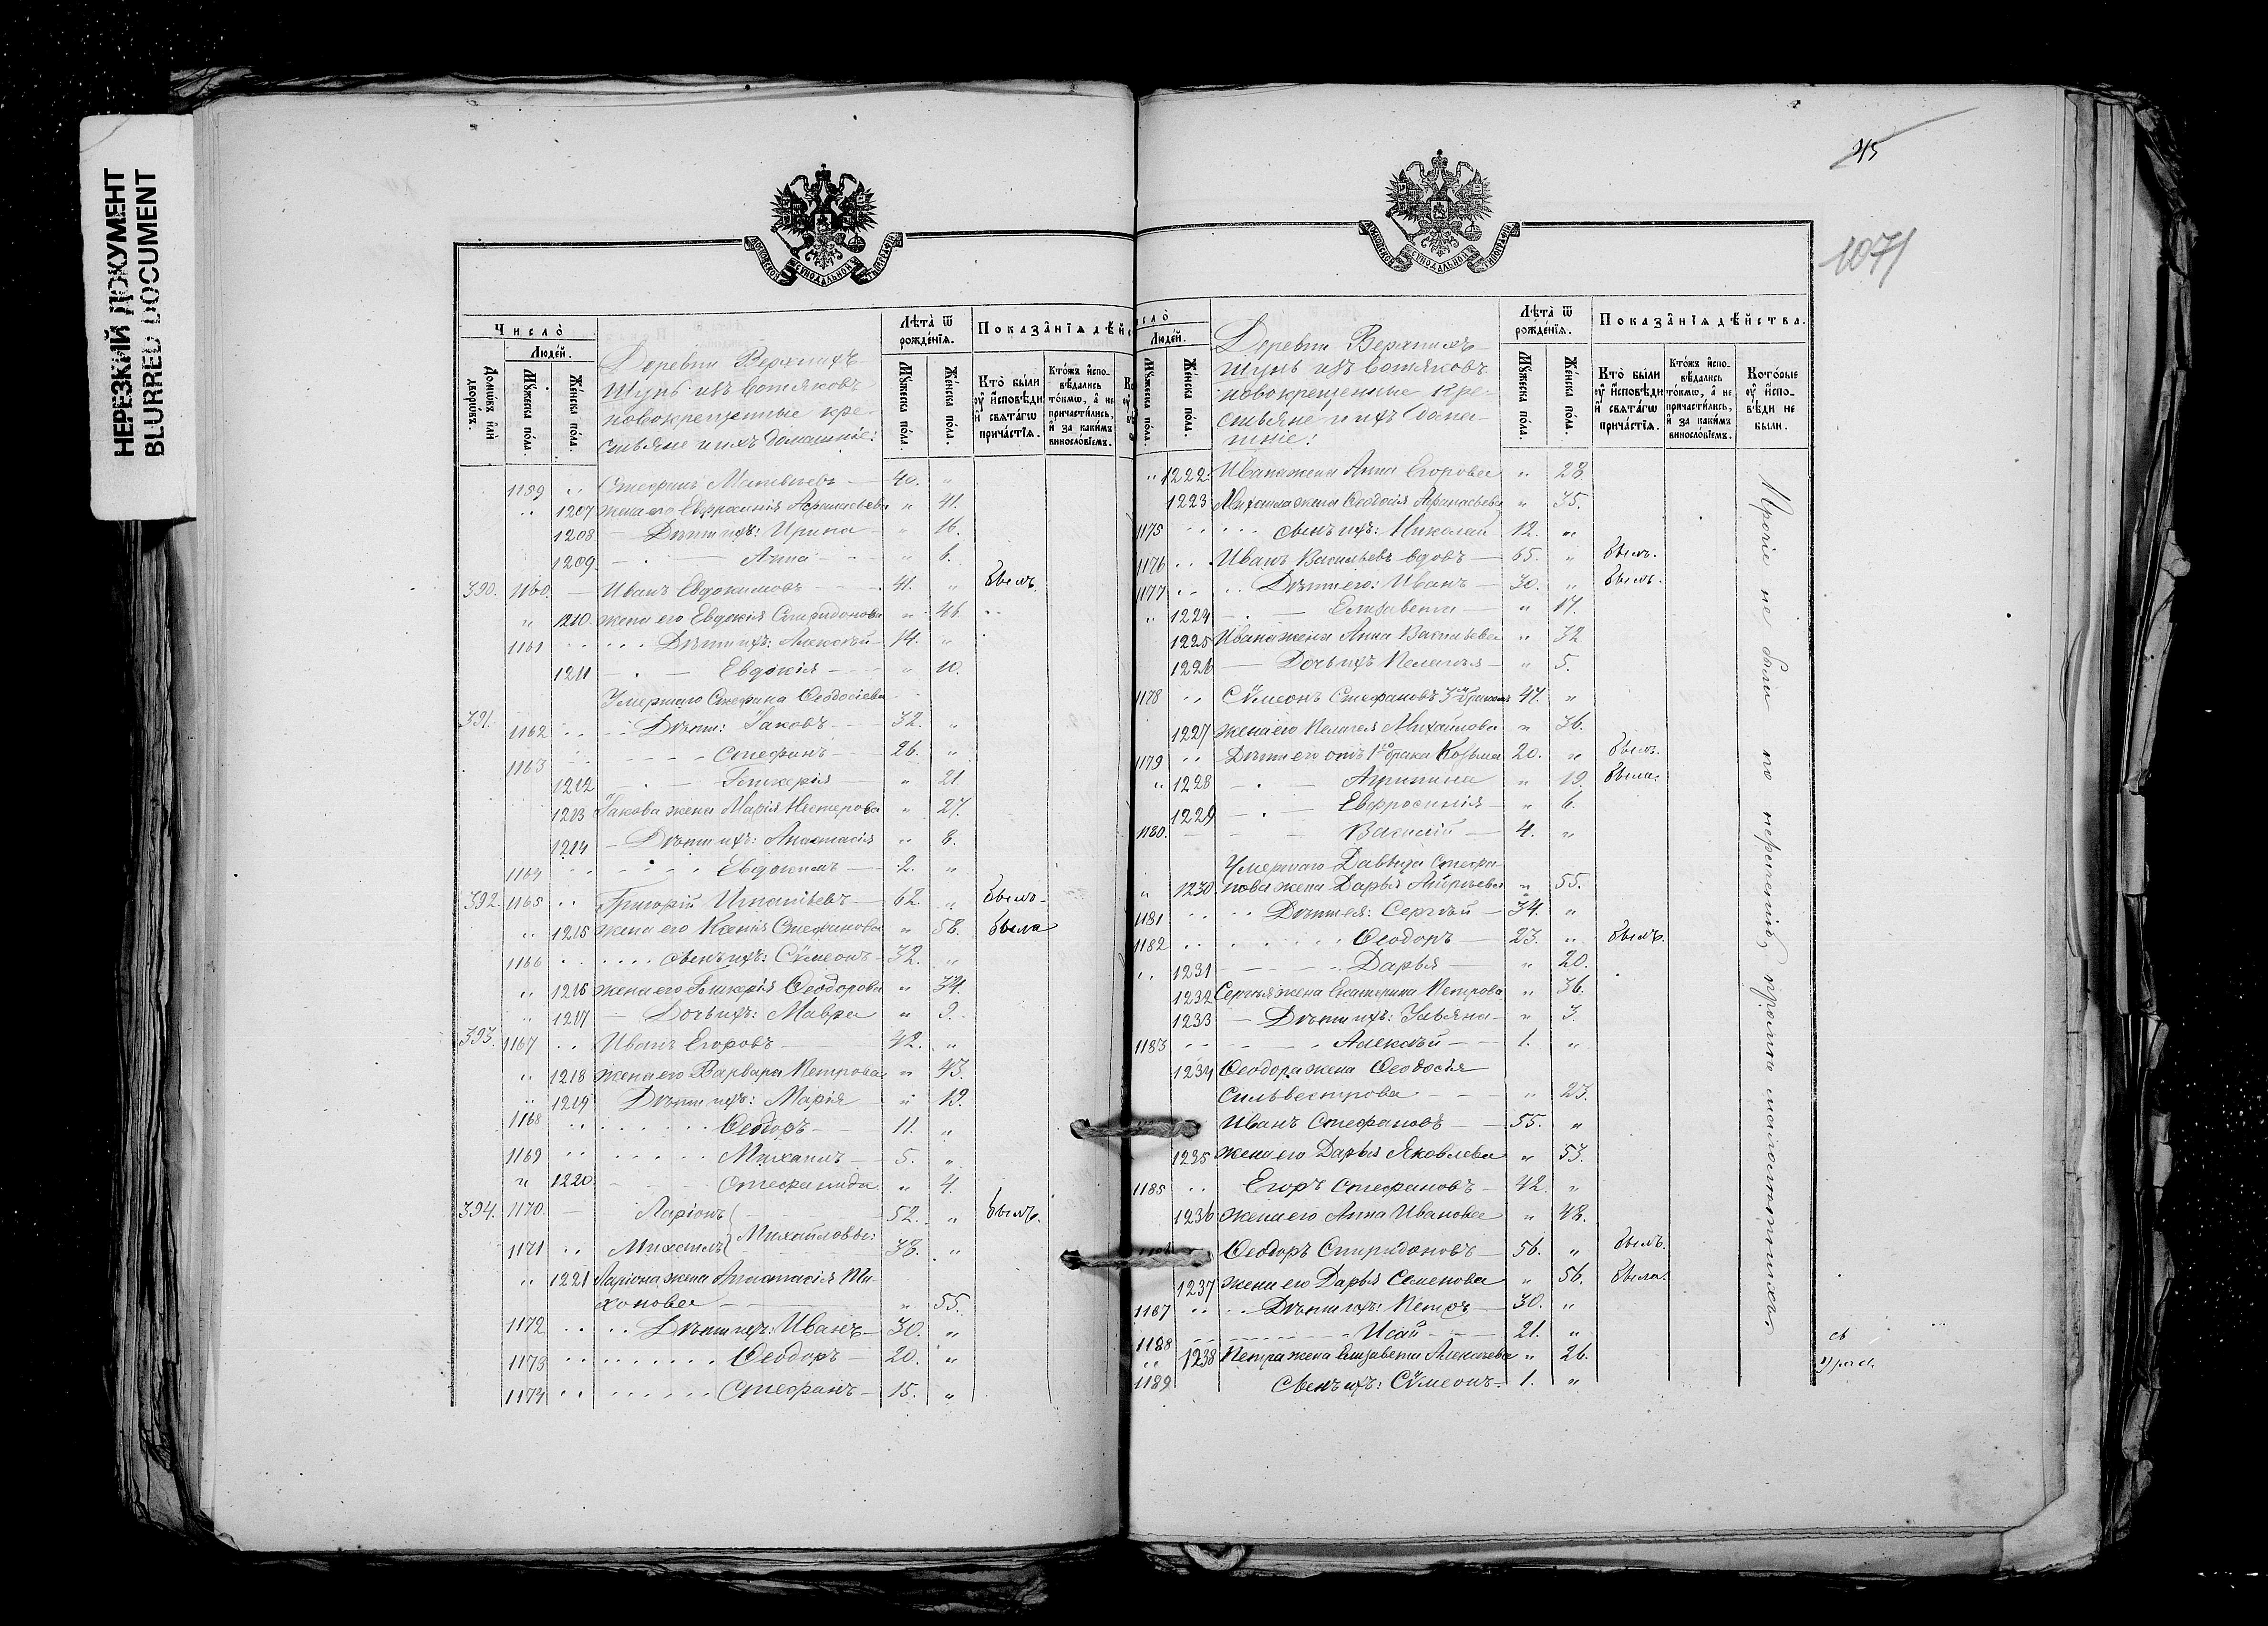 НЕРЕЗКИЙ ДОКУМЕНТ
BLURRED DOCUMENT
МОСКОВСКОЙ СѴНОДАЛЬНОЙ ТИПОГРАФІИ
Число̀
Домѡ́въ и҆лѝ дворѡ́въ.
Люде́й.
Мꙋ́жеска по́ла.
Же́нска по́ла.
Деревни Верхнихъ
Шунь изъ вотяковъ
новокрещенные кре-
стьяне и ихъ домашніе:
Лѣ́та ѿ рожде́нїѧ.
Мꙋ́жеска по́ла.
Же́нска по́ла.
Показа̂нїѧ дѣ́йс
Кто̀ бы́ли ᲂу҆ и҆сповѣ́ди и҆ свѧта́гѡ прича́стїѧ.
Кто́жъ и҆спо-вѣ́дались то́кмѡ, а҆ не причасти́лись, и҆ за каки́мъ винослѡ́вїемъ.
1159 " Стефанъ Матвѣевъ — 40. "
" 1207 жена его Евфросинія Афанасьева " 41.
1208 — Дѣти ихъ: Ирина — " 16.
1209. — Анна — " 6.
390. 1160. — Иванъ Евдокимовъ — 41. " былъ.
" 1210. жена его Евдокія Спиридонова " 46 "
1161 " Дѣти ихъ: Алексѣй — 14. "
1211 — Евдокія — " 10.
Умершаго Стефана Ѳеодосіева
391. 1162 " Дѣти: Іаковъ — 32. "
1163 " Стефанъ — 26. "
1212 — Гликерія — " 21
1213 Іакова жена Марія Нестерова " 27.
1214 — Дѣти ихъ: Анастасія " 8.
1164 " Евдокимъ — 2. "
392. 1165 " Григорій Игнатьевъ — 62. " былъ.
" 1215 жена его Ксенія Стефанова " 58. была
1166 " сынъ ихъ: Сѷмеонъ — 32. "
" 1216 жена его Гликерія Ѳеодорова " 34.
" 1217 — Дочь ихъ: Мавра " 9.
393. 1167 " Иванъ Егоровъ — 42. "
" 1218 жена его Варвара Петрова " 43.
" 1219 Дѣти ихъ: Марія " 19.
1168 " Ѳеодоръ — 11. "
1169 " Михаилъ — 5. "
" 1220 — Стефанида " 4.
394. 1170. — Ларіонъ — 52. " былъ.
1171 " Михаилъ } Михайловы: 38. "
" 1221 Ларіона жена Анастасія Ти-
хонова — " 55.
1172 " Дѣти ихъ: Иванъ — 30. "
1173 " Ѳеодоръ — 20. "
1174 " Стефанъ — 15. "
45
1071
МОСКОВСКОЙ СѴНОДАЛЬНОЙ ТИПОГРАФІИ
исло̀
Люде́й.
Мꙋ́жеска по́ла.
Же́нска по́ла.
Деревни Верхнихъ
Шунь изъ вотяковъ
новокрещенные кре-
стьяне и ихъ дома-
шніе:
Лѣ́та ѿ рожде́нїѧ.
Мꙋ́жеска по́ла.
Же́нска по́ла.
Показа̂нїѧ дѣ́йства.
Кто̀ бы́ли ᲂу҆ и҆сповѣ́ди и҆ свѧта́гѡ прича́стїѧ.
Кто́жъ и҆спо-вѣ́дались то́кмѡ, а҆ не причасти́лись, и҆ за каки́мъ винослѡ́вїемъ.
Кото́рые ᲂу҆ и҆спо-вѣ́ди не бы́ли.
" 1222. Ивана жена Анна Егорова " 28
1223 Михаила жена Ѳеодосія Афанасьева " 35.
1175 " сынъ ихъ: Николай 12. "
1176 " Иванъ Васильевъ вдовъ — 65. " былъ.
1177 " Дѣти его: Иванъ — 30. " былъ.
" 1224 — Елизавета — " 17.
1225 Ивана жена Анна Васильева " 32
1226 — Дочь ихъ Пелагія — " 5.
1178 " Сѷмеонъ Стефановъ 3мъ бракомъ 47. "
1227 жена его Пелагея Михайлова " 36.
1179 " Дѣти его отъ 1го брака Козьма 20. " былъ.
" 1228 — Агрипина " 19. была.
1229 — Евфросинія — " 6.
1180. — Василій — 4. "
Умершаго Давыда Стефа-
" 1230. нова жена Дарья " 55.
1181 " Дѣти ея: Сергѣй — 34. "
1182 " Ѳеодоръ — 23. " былъ.
" 1231 — Дарья — " 20.
1232 Сергѣя жена Екатерина Петрова " 36.
1233 — Дѣти ихъ: Ульяна — " 3.
1183 " Алексѣй — 1. "
1234 Ѳеодора жена Ѳеодосья
Сильвестрова — " 23.
Иванъ Стефановъ — 55. "
1235 жена его Дарья Яковлева " 53.
1185 " Егоръ Стефановъ — 42. "
1236 жена его Анна Иванова " 48.
Ѳеодоръ Спиридоновъ — 56. " былъ.
1237 жена его Дарья Семенова " 56. была.
1187 " Дѣти ихъ: Петръ — 30. "
1188 — Исай — 21. "
" 1238 Петра жена Елизавета Алексѣева " 26.
1189 Сынъ ихъ: Сѷмеонъ — 1. "
Прочіе не были по нерачению, кромѣ малолѣтнихъ